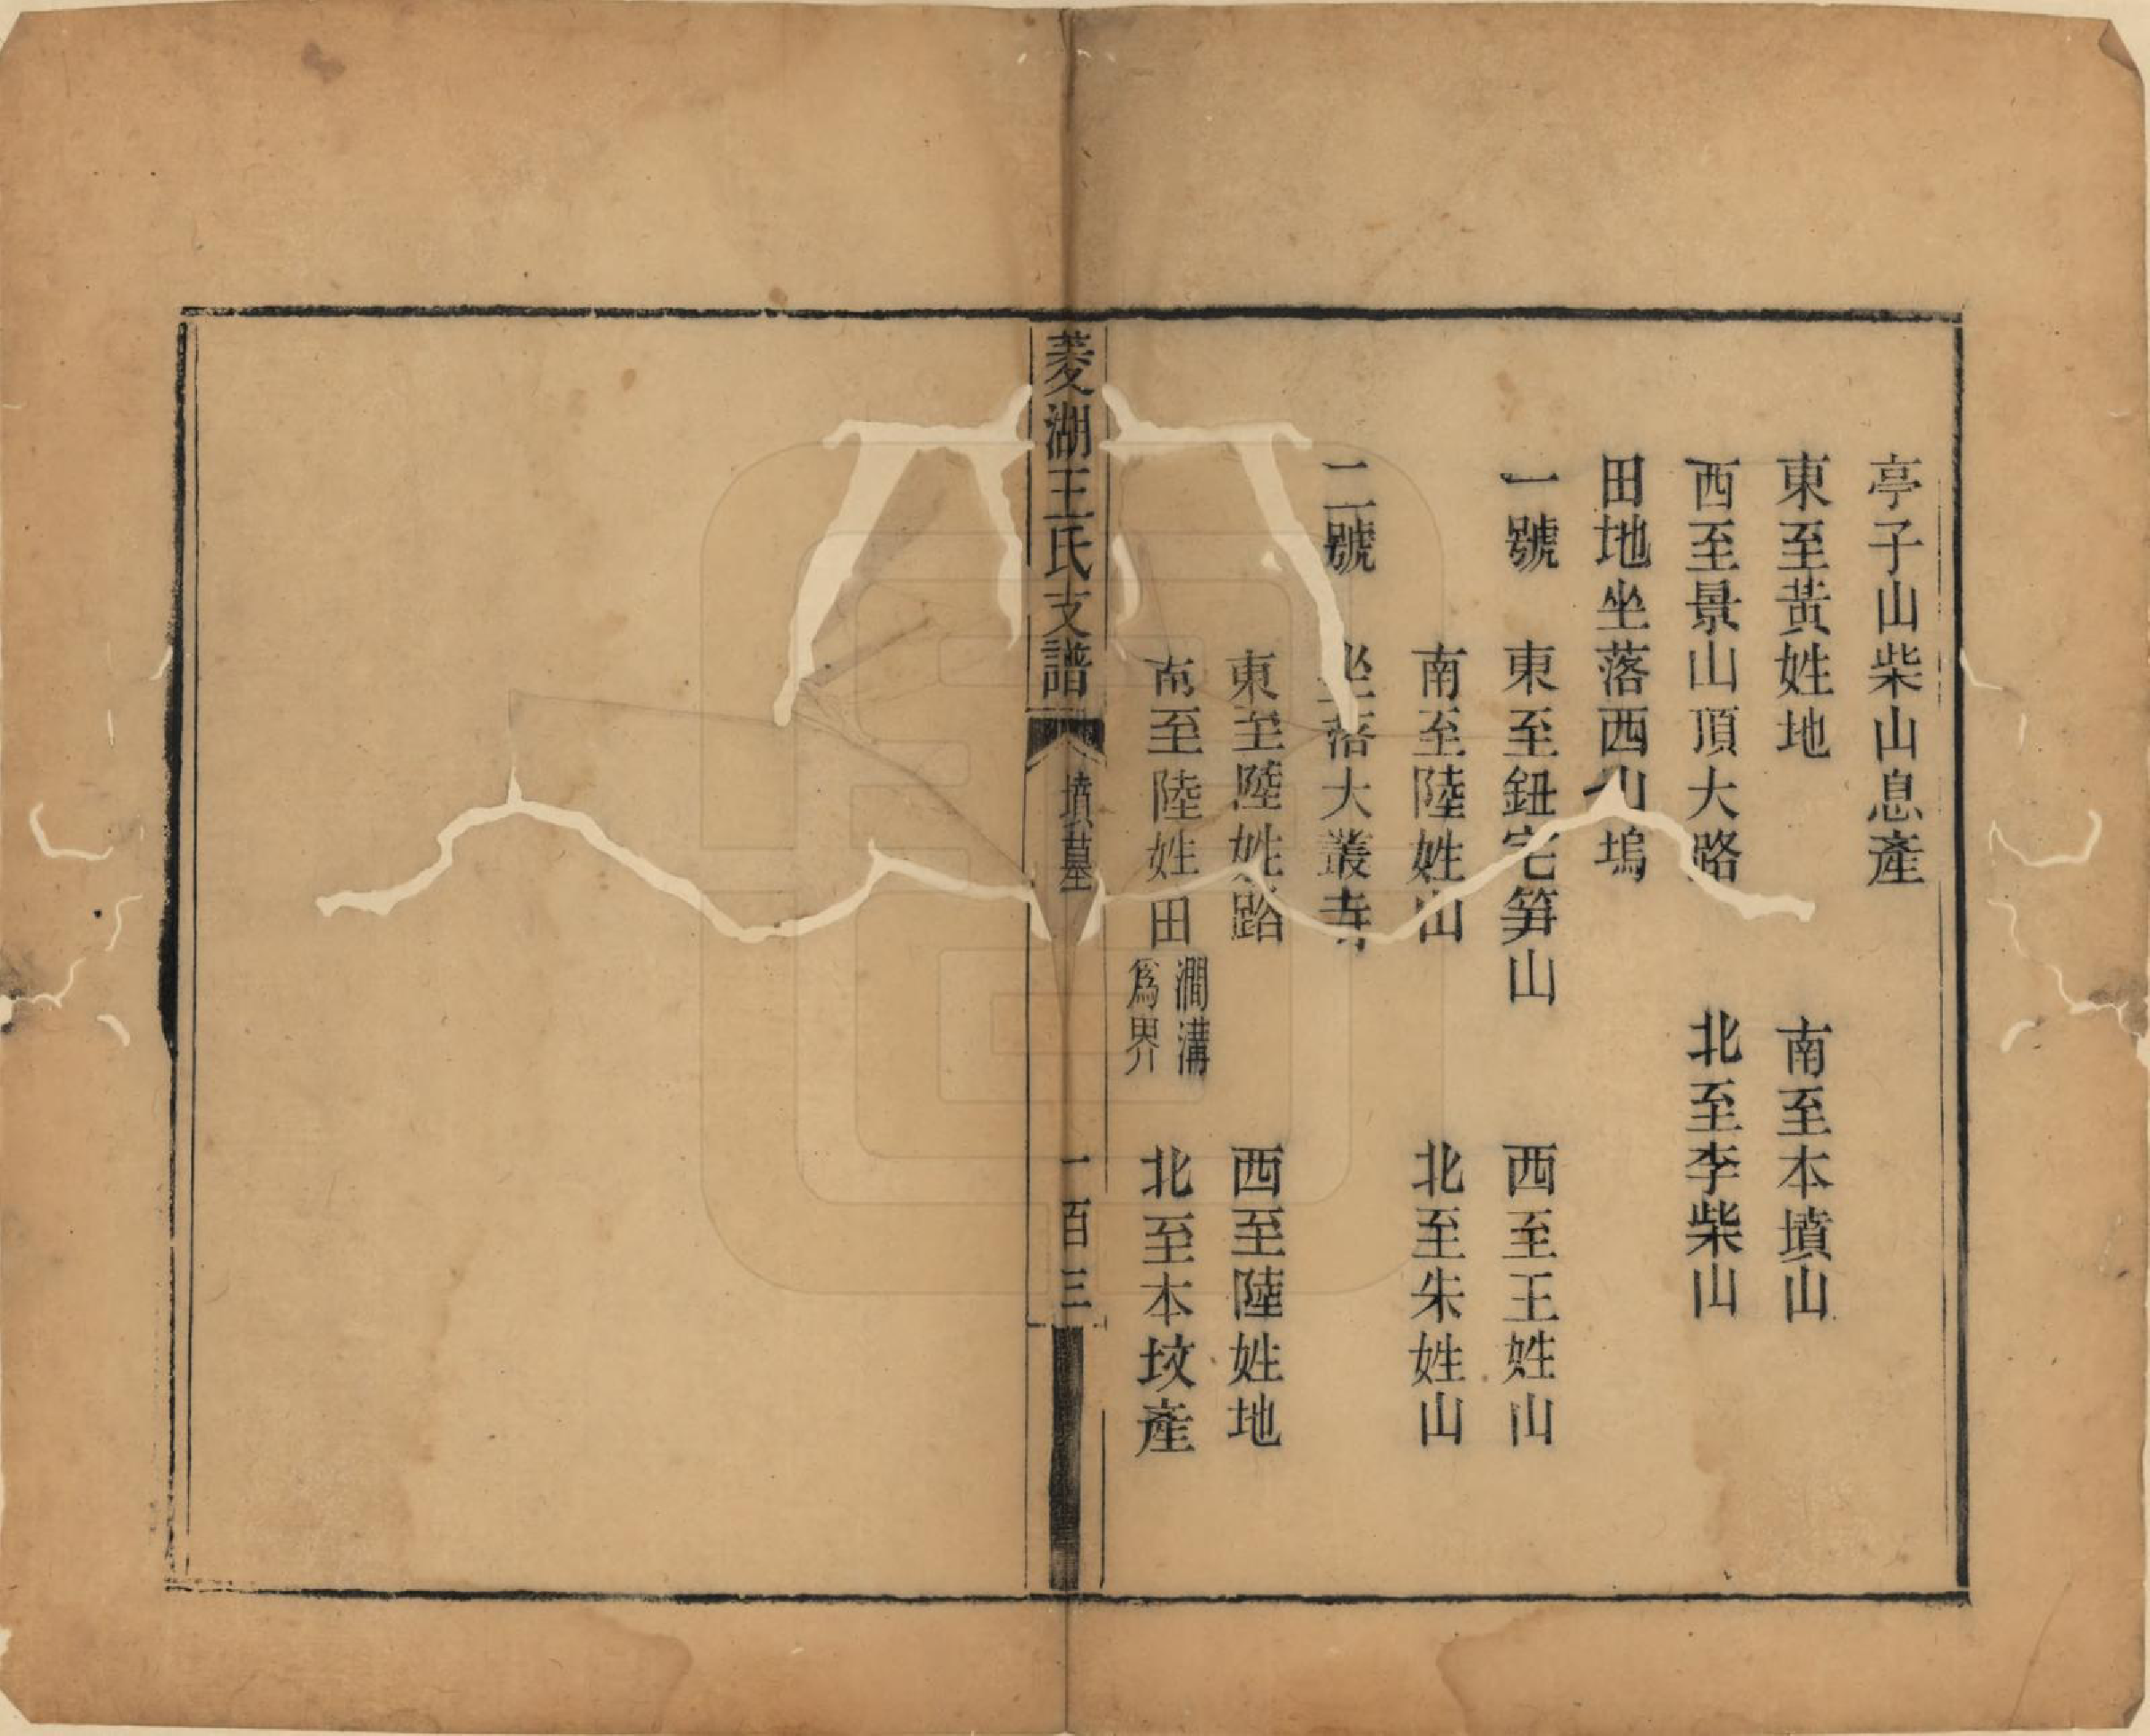 亭子山柴山息產
東至黃姓地　南至本墳山
西至景山頂大路　北至李柴山
田地坐落西山塢
一號　東至鈕宅筍山　西至王姓山
南至陸姓山　北至朱姓山
二號　坐落大叢寺
東至陸姓路　西至陸姓地
南至陸姓田澗溝爲界　北至本坟產
菱湖王氏支譜　墳墓　一百三